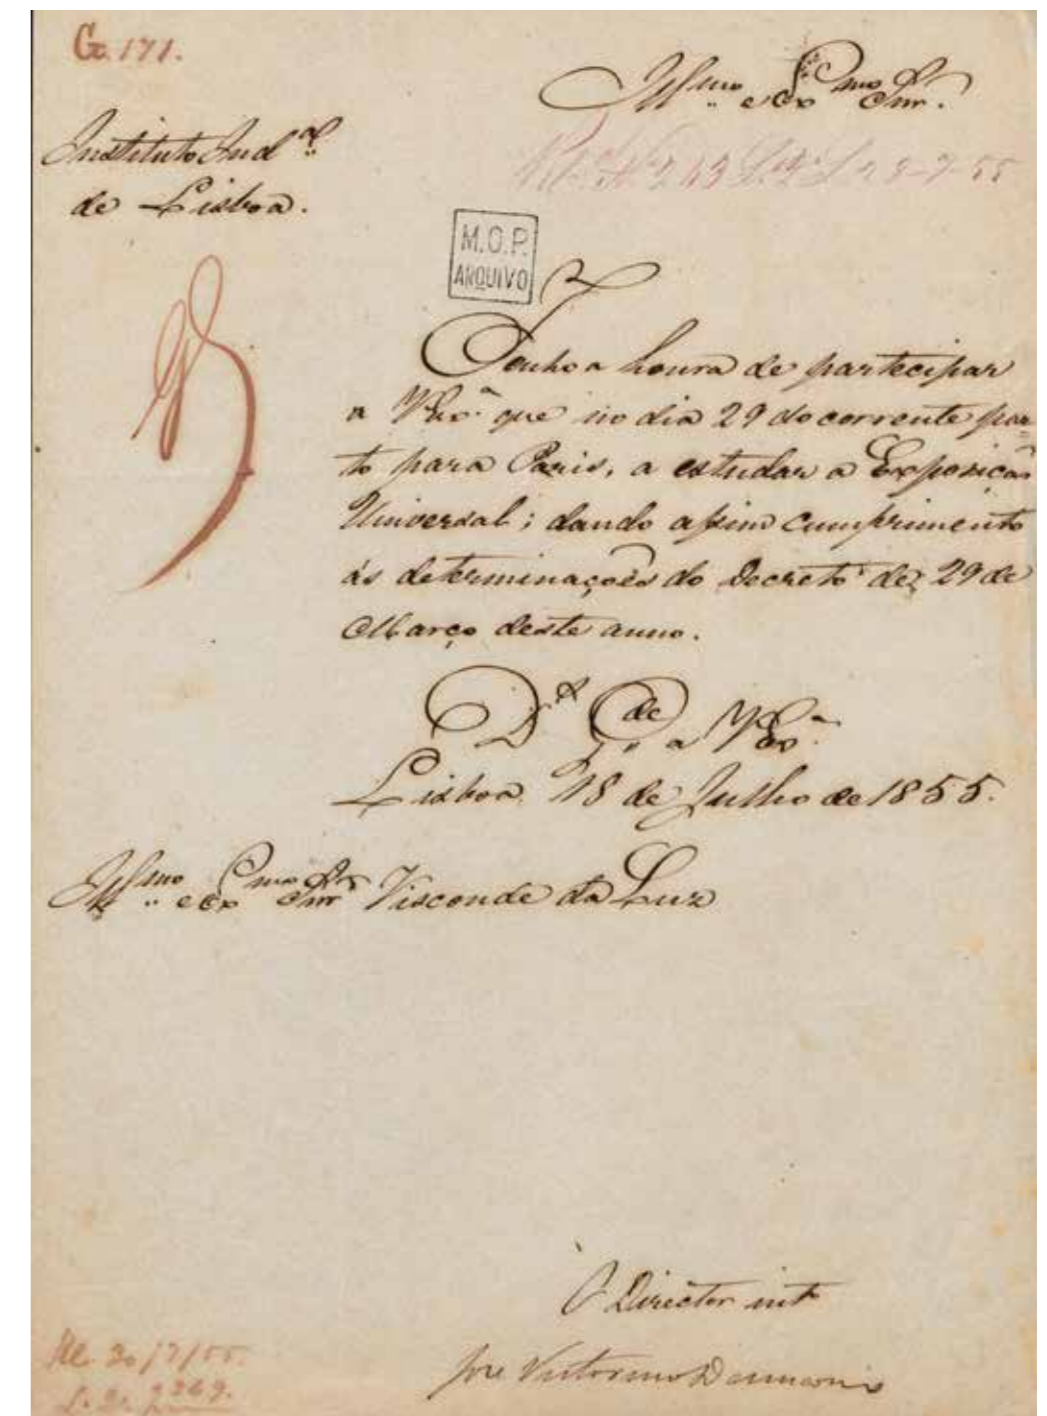 G. 171.
Ill.mo e Ex.mo Snr.
Instituto Ind.al
de Lisboa.
28-7-55
M.O.P.
ARQUIVO
Tenho a honra de partecipar
a V Ex.a que no dia 29 do corrente par=
to para Paris, a estudar a Exposição
Universal; dando assim cumprimento
ás determinações do Decreto de 29 de
Março deste anno.
D.s G.de a V Ex.a
Lisboa 18 de Julho de 1855.
Ill.mo e Ex.mo Snr. Visconde da Luz
O Director int.o
José Victorino Damasio
30/7/55.